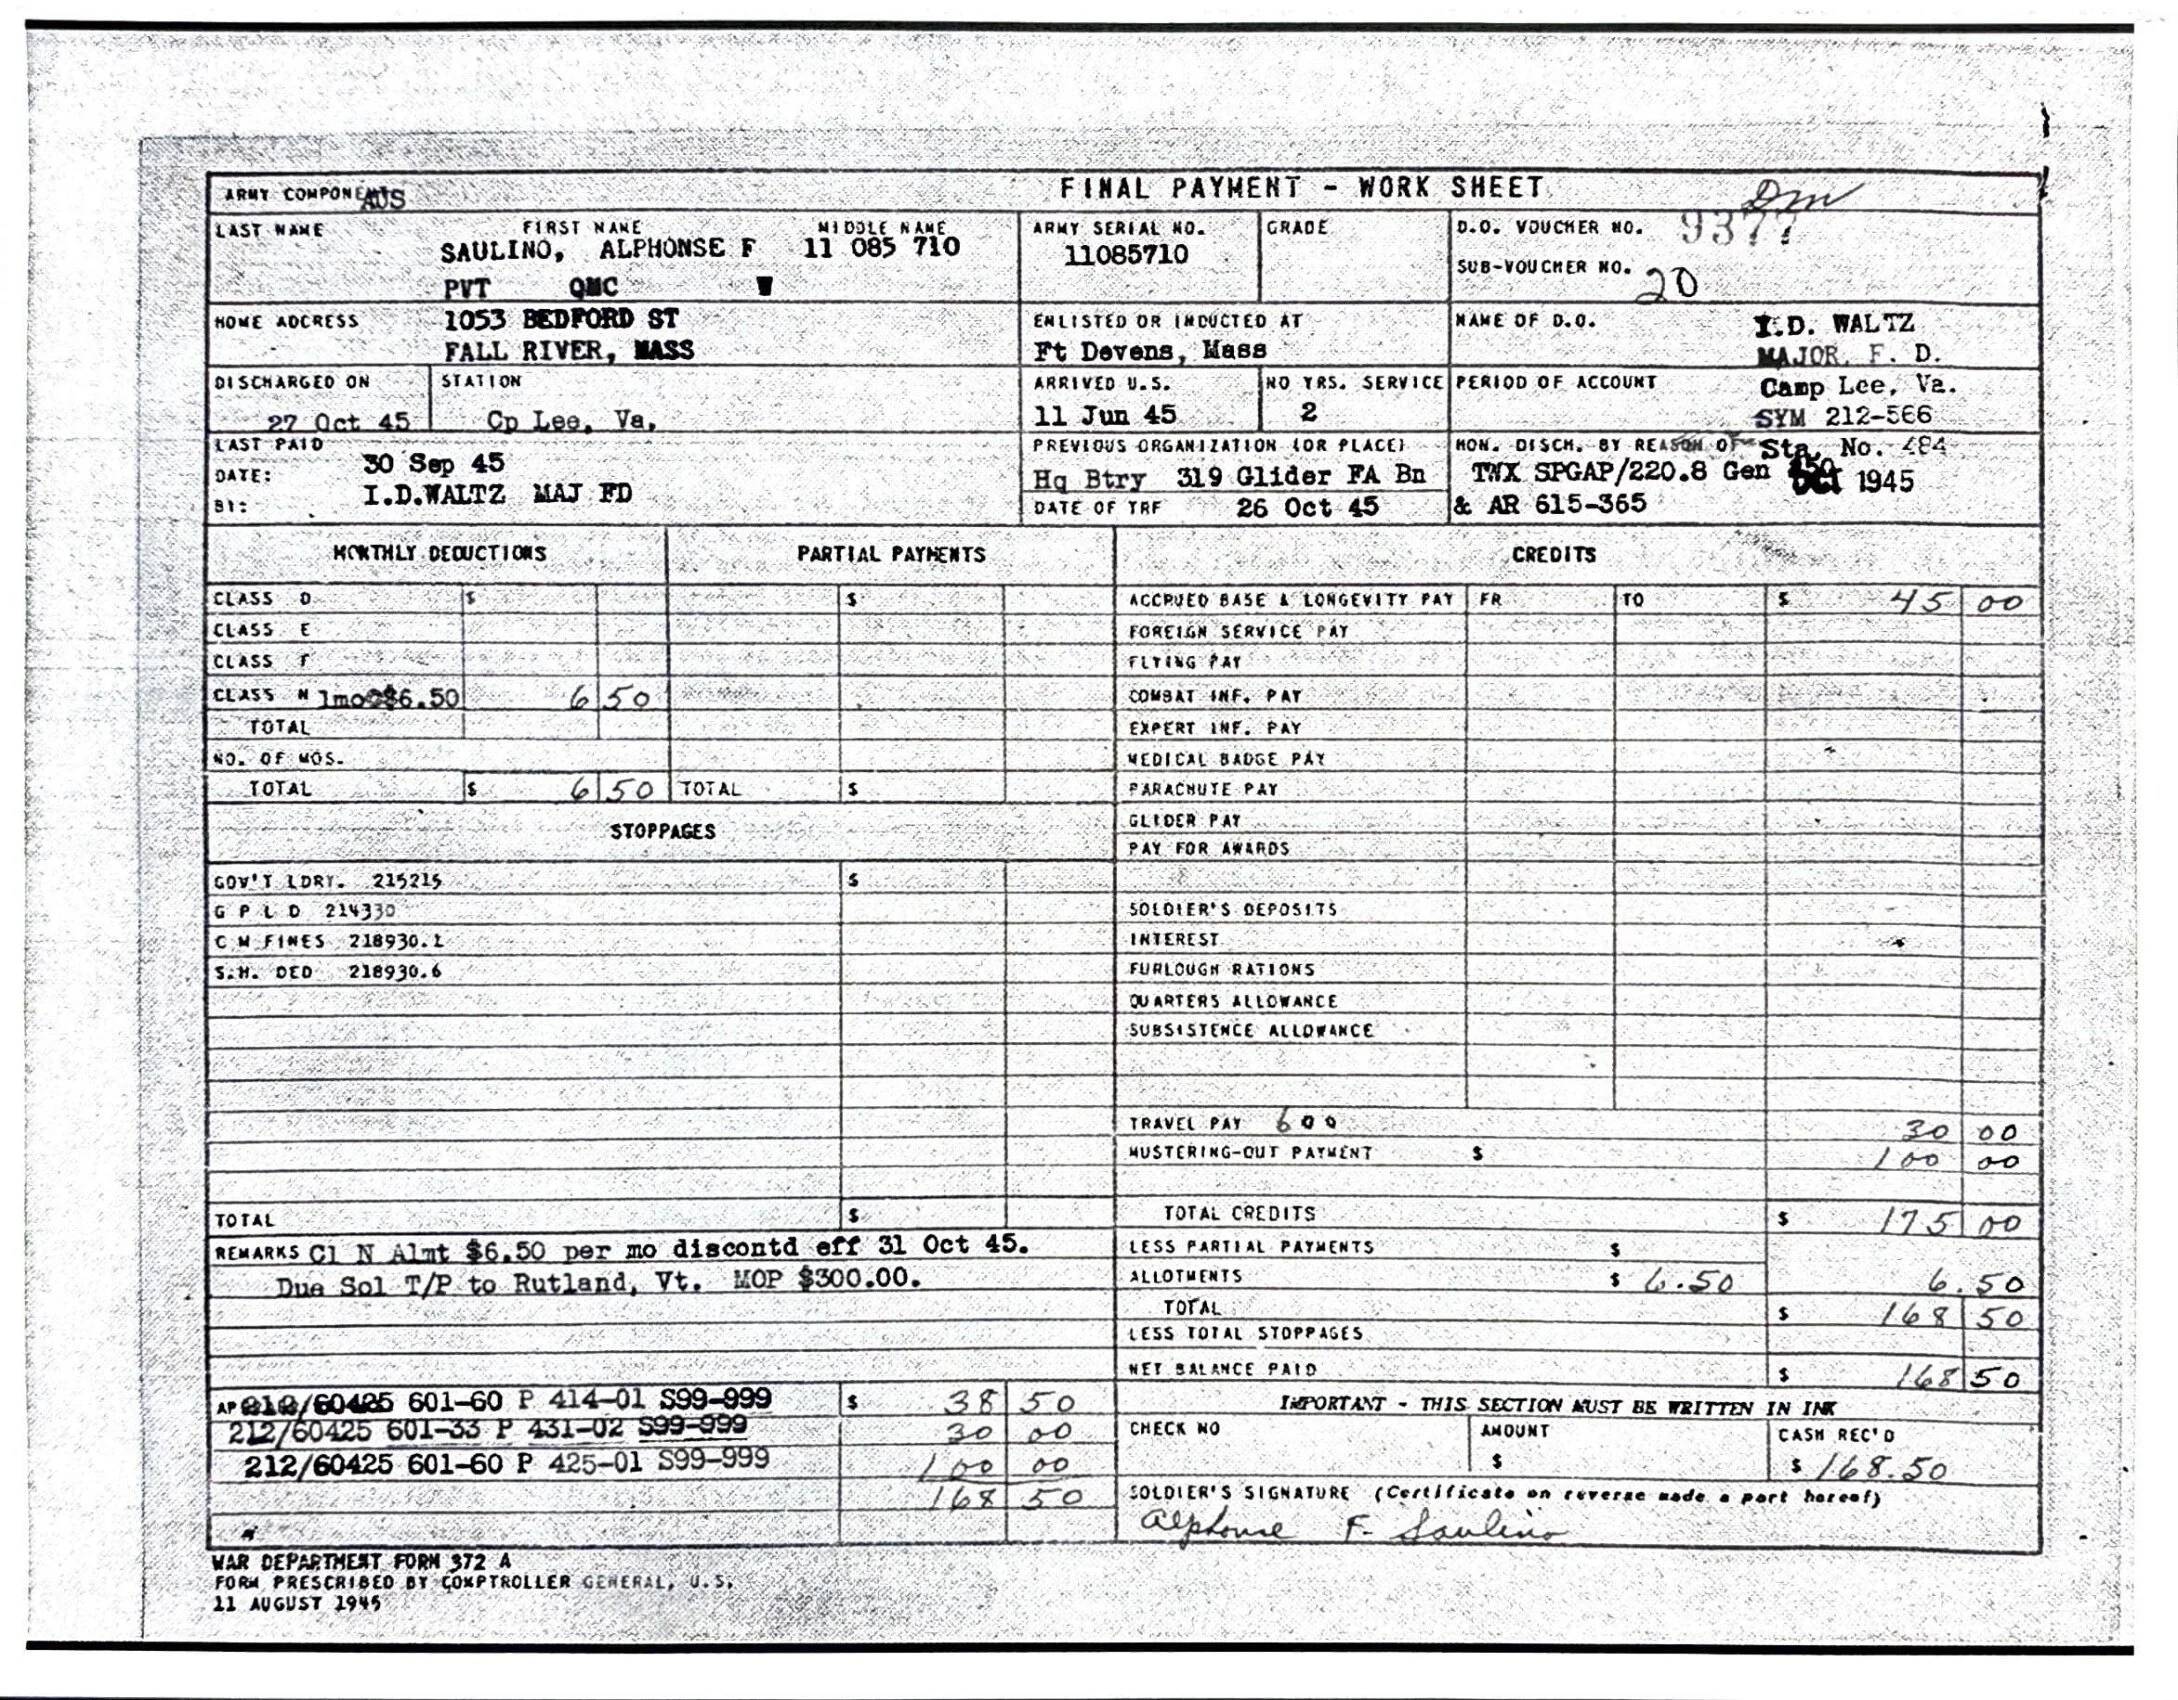 ARMY COMPONE AUS
FINAL PAYMENT - WORK SHEET
LAST NAME FIRST NAME MIDDLE NAME
SAULINO, ALPHONSE F 11 085 710
PVT QMC W
ARMY SERIAL NO.
11085710
GRADE
D.O. VOUCHER NO. 9377
SUB-VOUCHER NO. 20
HOME ADDRESS 1053 BEDFORD ST
FALL RIVER, MASS
ENLISTED OR INDUCTED AT
Ft Devens, Mass
NAME OF D.O. I.D. WALTZ
MAJOR, F. D.
DISCHARGED ON
27 Oct 45
STATION
Cp Lee, Va.
ARRIVED U.S.
11 Jun 45
NO YRS. SERVICE
2
PERIOD OF ACCOUNT Camp Lee, Va.
SYM 212-566
LAST PAID
DATE: 30 Sep 45
BY: I.D.WALTZ MAJ FD
PREVIOUS ORGANIZATION (OR PLACE)
Hq Btry 319 Glider FA Bn
DATE OF TRF 26 Oct 45
HON. DISCH. BY REASON OF Sta. No. 484
TWX SPGAP/220.8 Gen OCT 1945
& AR 615-365
MONTHLY DEDUCTIONS PARTIAL PAYMENTS CREDITS
CLASS D $ $ ACCRUED BASE & LONGEVITY PAY FR TO $ 45 00
CLASS E FOREIGN SERVICE PAY
CLASS F FLYING PAY
CLASS N 1mo@$6.50 6 50 COMBAT INF. PAY
TOTAL EXPERT INF. PAY
NO. OF MOS. MEDICAL BADGE PAY
TOTAL $ 6 50 TOTAL $ PARACHUTE PAY
STOPPAGES GLIDER PAY
PAY FOR AWARDS
GOV'T LDRY. 215215 $
G P L D 214330 SOLDIER'S DEPOSITS
C M FINES 218930.1 INTEREST
S.H. DED 218930.6 FURLOUGH RATIONS
QUARTERS ALLOWANCE
SUBSISTENCE ALLOWANCE
TRAVEL PAY 600 30 00
MUSTERING-OUT PAYMENT $ 100 00
TOTAL $ TOTAL CREDITS $ 175 00
REMARKS Cl N Almt $6.50 per mo discontd eff 31 Oct 45. LESS PARTIAL PAYMENTS $
Due Sol T/P to Rutland, Vt. MOP $300.00. ALLOTMENTS $ 6.50 6.50
TOTAL $ 168 50
LESS TOTAL STOPPAGES
NET BALANCE PAID $ 168 50
AP 212/60425 601-60 P 414-01 S99-999 $ 38 50 IMPORTANT - THIS SECTION MUST BE WRITTEN IN INK
212/60425 601-33 P 431-02 S99-999 30 00 CHECK NO AMOUNT CASH REC'D
212/60425 601-60 P 425-01 S99-999 100 00 $ $ 168.50
168 50 SOLDIER'S SIGNATURE (Certificate on reverse made a part hereof)
Alphonse F. Saulino
WAR DEPARTMENT FORM 372 A
FORM PRESCRIBED BY COMPTROLLER GENERAL, U.S.
11 AUGUST 1945